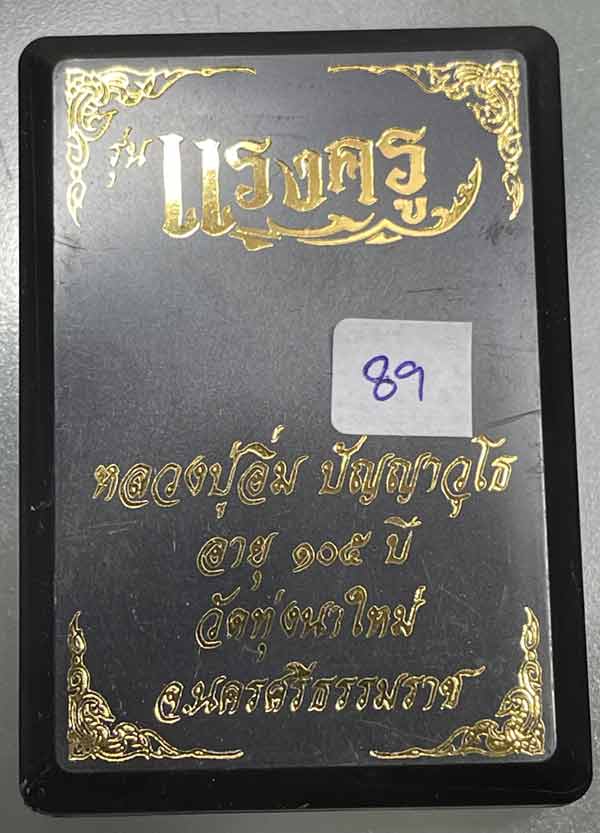 รุ่น แรงครู
89
หลวงปู่อิ่ม ปัญญาวุโธ
อายุ ๑๐๕ ปี
วัดทุ่งนาใหม่
จ.นครศรีธรรมราช